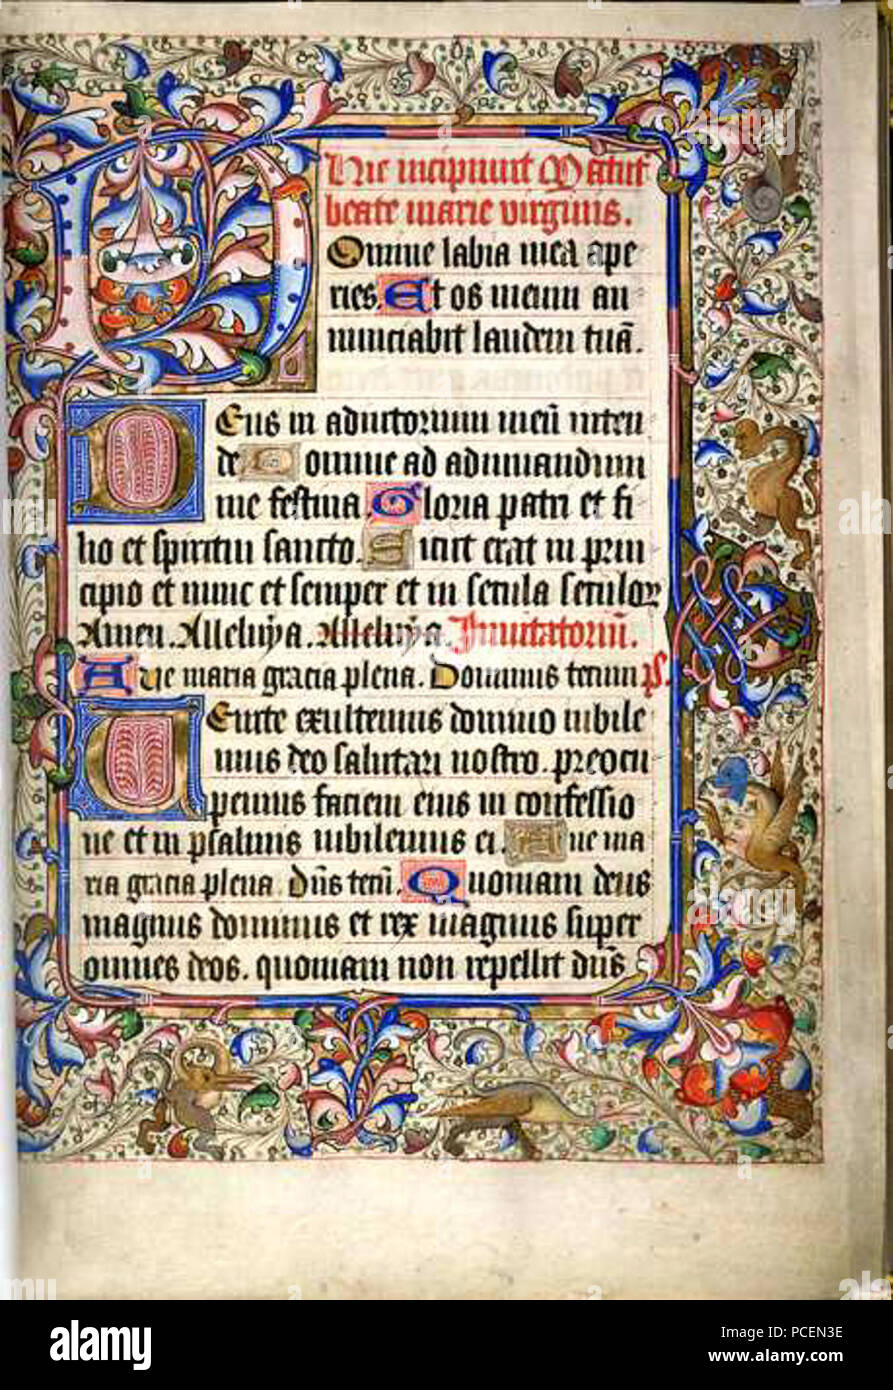 Hic incipiunt Matut
beate marie virginis.
Domine labia mea ape
ries. Et os meum an
nunciabit laudem tuā.
Deus in adiutorium meū inten
de Domine ad adiuuandum
me festina Gloria patri et fi
lio et spiritui sancto. Sicut erat in prin
cipio et nunc et semper et in secula seculor
Amen. Alleluya. Alleluya. Inuitatoriū.
Aue maria gracia plena. Dominus tecum ps.
Uenite exultemus domino iubile
mus deo salutari nostro. preocu
pemus faciem eius in confessio
ne et in psalmis iubilemus ei. Aue ma
ria gracia plena. Dn̄s tecū. Quoniam deus
magnus dominus et rex magnus super
omnes deos. quoniam non repellit dn̄s
alamy
Image ID: PCEN3E
www.alamy.com